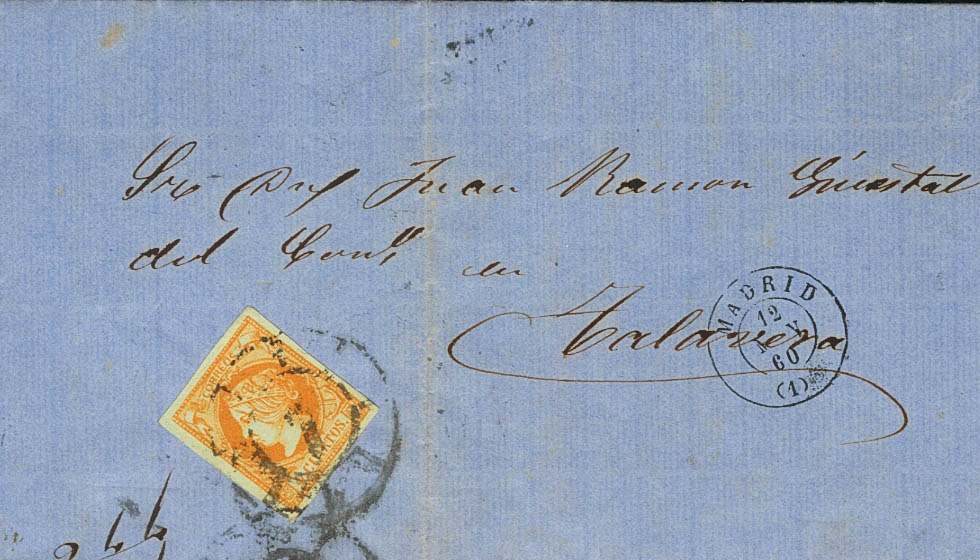 Sr. Dn. Juan Ramon
del Com.º en
Talavera
MADRID
12
MY
60
(1)
CORREOS
CUARTOS